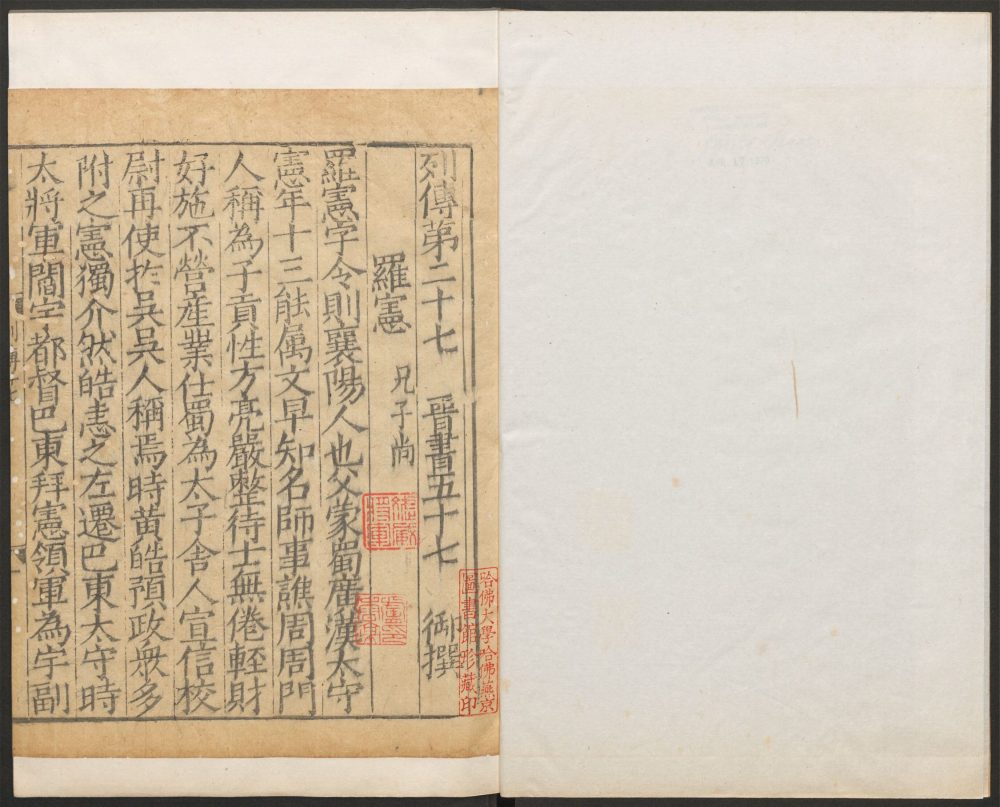 列傳第二十七　晉書五十七　御撰
羅憲　兄子尚
羅憲字令則襄陽人也父蒙蜀廣漢太守
憲年十三能属文早知名師事譙周周門
人稱為子貢性方亮嚴整待士無倦輕財
好施不營産業仕蜀為太子舍人宣信校
尉再使扵吳吳人稱焉時黃皓預政衆多
附之憲獨介然皓恚之左遷巴東太守時
太將軍閻宇都督巴東拜憲領軍為宇副
哈佛大學哈佛燕京
圖書館珍藏印